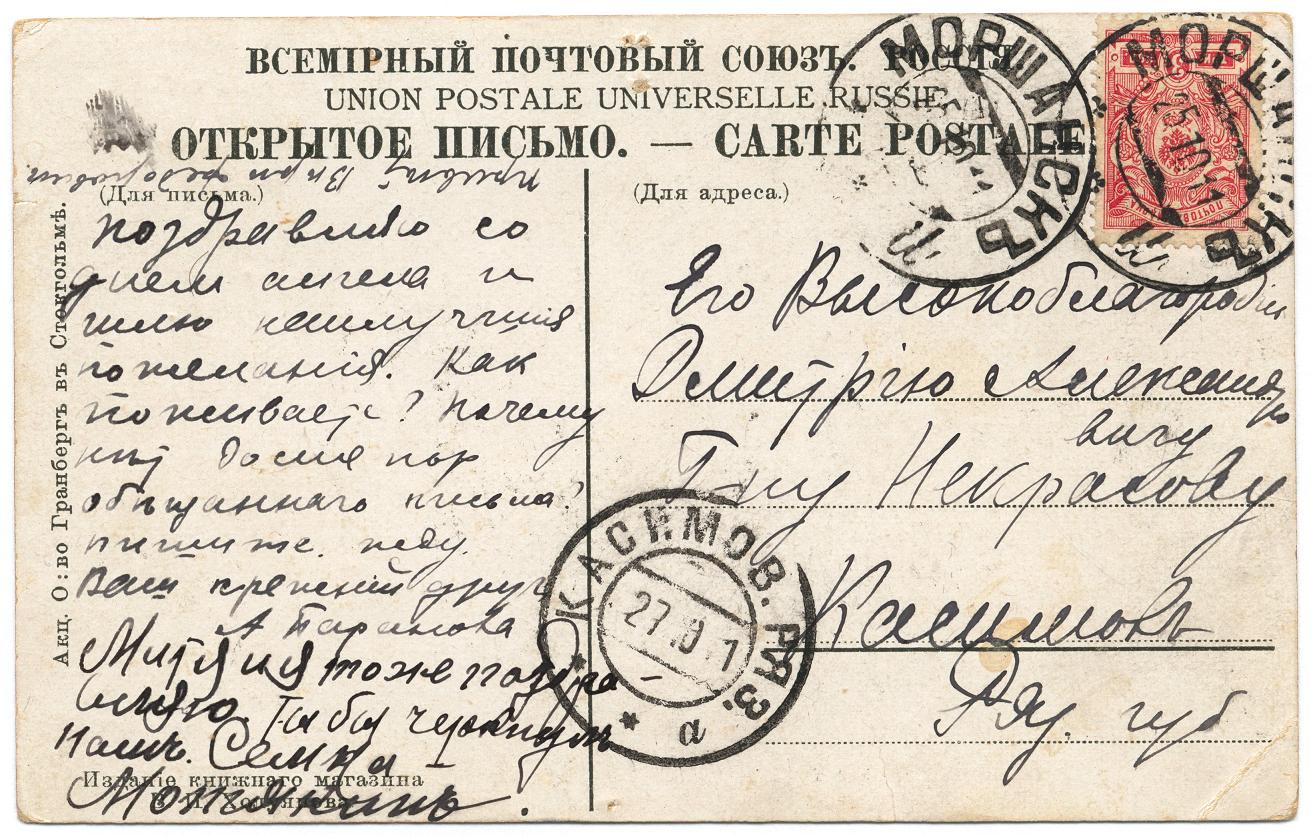 ВСЕМІРНЫЙ ПОЧТОВЫЙ СОЮЗЪ. РОССІЯ
UNION POSTALE UNIVERSELLE RUSSIE
ОТКРЫТОЕ ПИСЬМО. — CARTE POSTALE
(Для письма.)
поздравляю со
днем ангела и
шлю наилучшия
пожеланія. Как
поживаете? Почему
нет до сих пор
обѣщаннаго письма?
пишите. жду.
Ваш прежний друг
А Таранова
Митя и я тоже поздра
вляю.
намъ. Семка
Издание книжнаго магазина
Акц. О:во Гранбергъ въ Стокгольмѣ.
(Для адреса.)
Его Высокоблагородию
Дмитрію Александро
вичу
Г-ну Некрасову
Касимовъ
Ряз. губ
МОРШАНСКЪ
МОРШАНСКЪ
25.10.11
КАСИМОВ. РЯЗ.
27 10 11
а